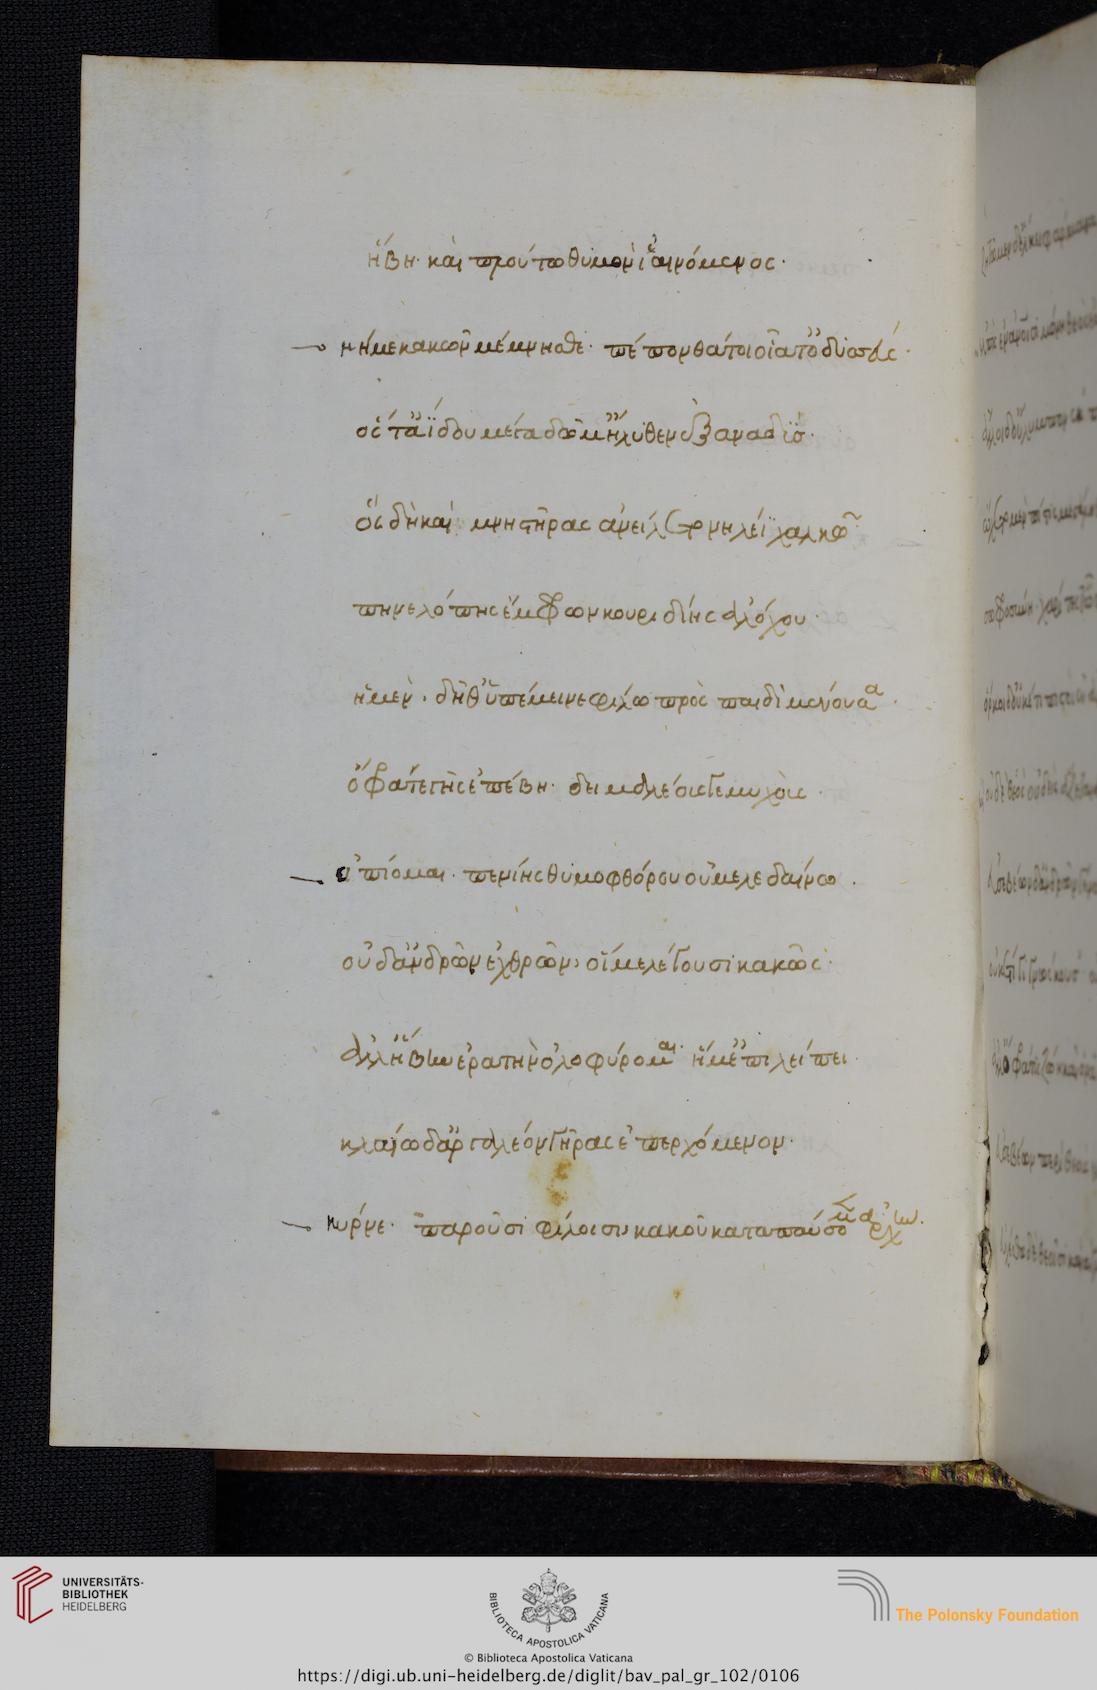 ἥβη· καὶ προὔπω θυμὸν ἰαινόμενος·
μή με κακῶν μέμνησθε· πέπονθά τοι οἷά τ' ὀδυσεύς·
ὅς τ' ἀΐδου μέγα δῶμ' ἤλυθεν ἐξαναδύς·
ὃς δὴ καὶ μνηστῆρας ἀνείλετο νηλέϊ χαλκῷ
πηνελόπης ἔμφρων κουριδίης ἀλόχου·
ἥ μεν· δήθ' ὑπέμεινε φίλῳ πρὸς παιδὶ μένουσα·
ὄφρα τε γῆς ἐπέβη· δειμαλέους τε μυχούς·
ἐμπίομαι· πενίης θυμοφθόρου οὐ μελεδαίνω·
οὐδ' ἀνδρῶν ἐχθρῶν, οἵ με λέγουσι κακῶς·
ἀλλ' ἥβην ἐρατὴν ὀλοφύρομαι· ἥ μ' ἐπιλείπει·
κλαίω δ' ἀργαλέον γῆρας ἐπερχόμενον·
κύρνε· παροῦσι φίλοισι κακοῦ καταπαύσομεν ἀρχήν·
UNIVERSITÄTS-
BIBLIOTHEK
HEIDELBERG
BIBLIOTECA APOSTOLICA VATICANA
The Polonsky Foundation
© Biblioteca Apostolica Vaticana
https://digi.ub.uni-heidelberg.de/diglit/bav_pal_gr_102/0106